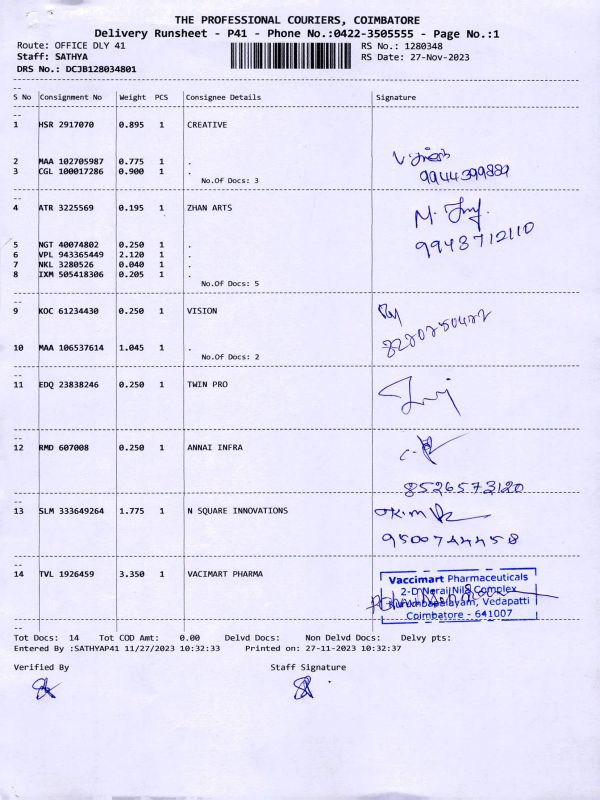 THE PROFESSIONAL COURIERS, COIMBATORE
Delivery Runsheet - P41 - Phone No.:0422-3505555 - Page No.:1
Route: OFFICE DLY 41 RS No.: 1280348
Staff: SATHYA RS Date: 27-Nov-2023
DRS No.: DCJB128034801
S No Consignment No Weight PCS Consignee Details Signature
1 HSR 2917070 0.895 1 CREATIVE
2 MAA 102705987 0.775 1 .
3 CGL 100017286 0.900 1 .
9944399889
No.Of Docs: 3
4 ATR 3225569 0.195 1 ZHAN ARTS
9943712110
5 NGT 40074802 0.250 1 .
6 VPL 943365449 2.120 1 .
7 NKL 3280526 0.040 1 .
8 IXM 505418306 0.205 1 .
No.Of Docs: 5
9 KOC 61234430 0.250 1 VISION
10 MAA 106537614 1.045 1 .
No.Of Docs: 2
11 EDQ 23838246 0.250 1 TWIN PRO
12 RMD 607008 0.250 1 ANNAI INFRA
8526573120
13 SLM 333649264 1.775 1 N SQUARE INNOVATIONS
9500744458
14 TVL 1926459 3.350 1 VACIMART PHARMA
Vaccimart Pharmaceuticals
2-D Nerail Nila Complex
Kurumbapalayam, Vedapatti
Coimbatore - 641007
Tot Docs: 14 Tot COD Amt: 0.00 Delvd Docs: Non Delvd Docs: Delvy pts:
Entered By :SATHYAP41 11/27/2023 10:32:33 Printed on: 27-11-2023 10:32:37
Verified By Staff Signature